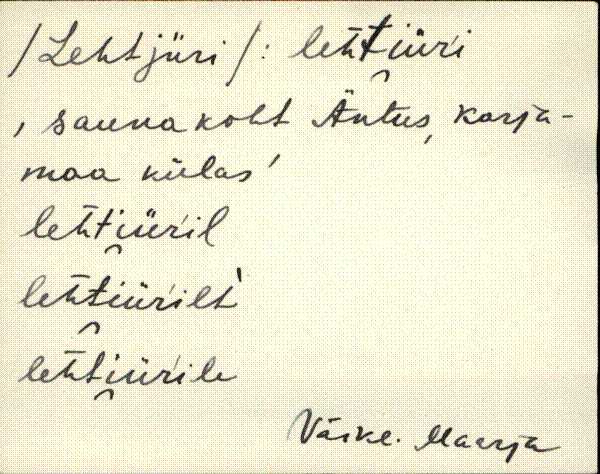 /Lehtjüri/: lehti̯üri
‚ saunakoht Äntus, Karja-
maa külas’
lehti̯üril
lehti̯ürilt
lehti̯ürile
Väike-Maarja